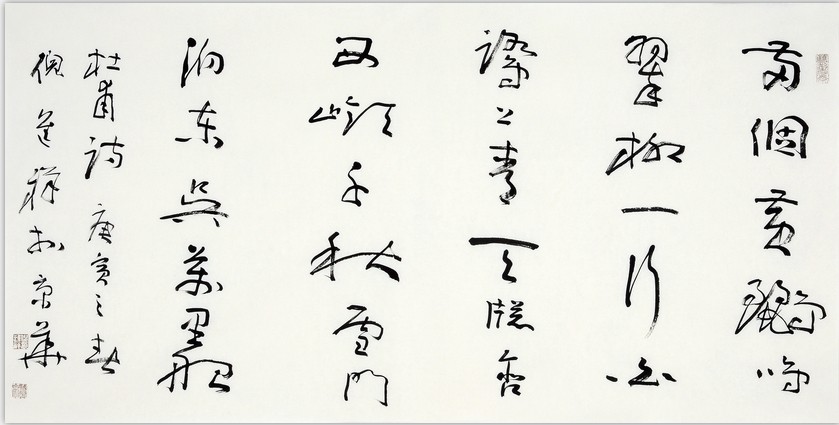 兩個黃鸝鳴
翠柳一行白
鷺上青天牕含
西嶺千秋雪門
泊東吳萬里船
杜甫詩 庚寅之春
倪進祥於京華